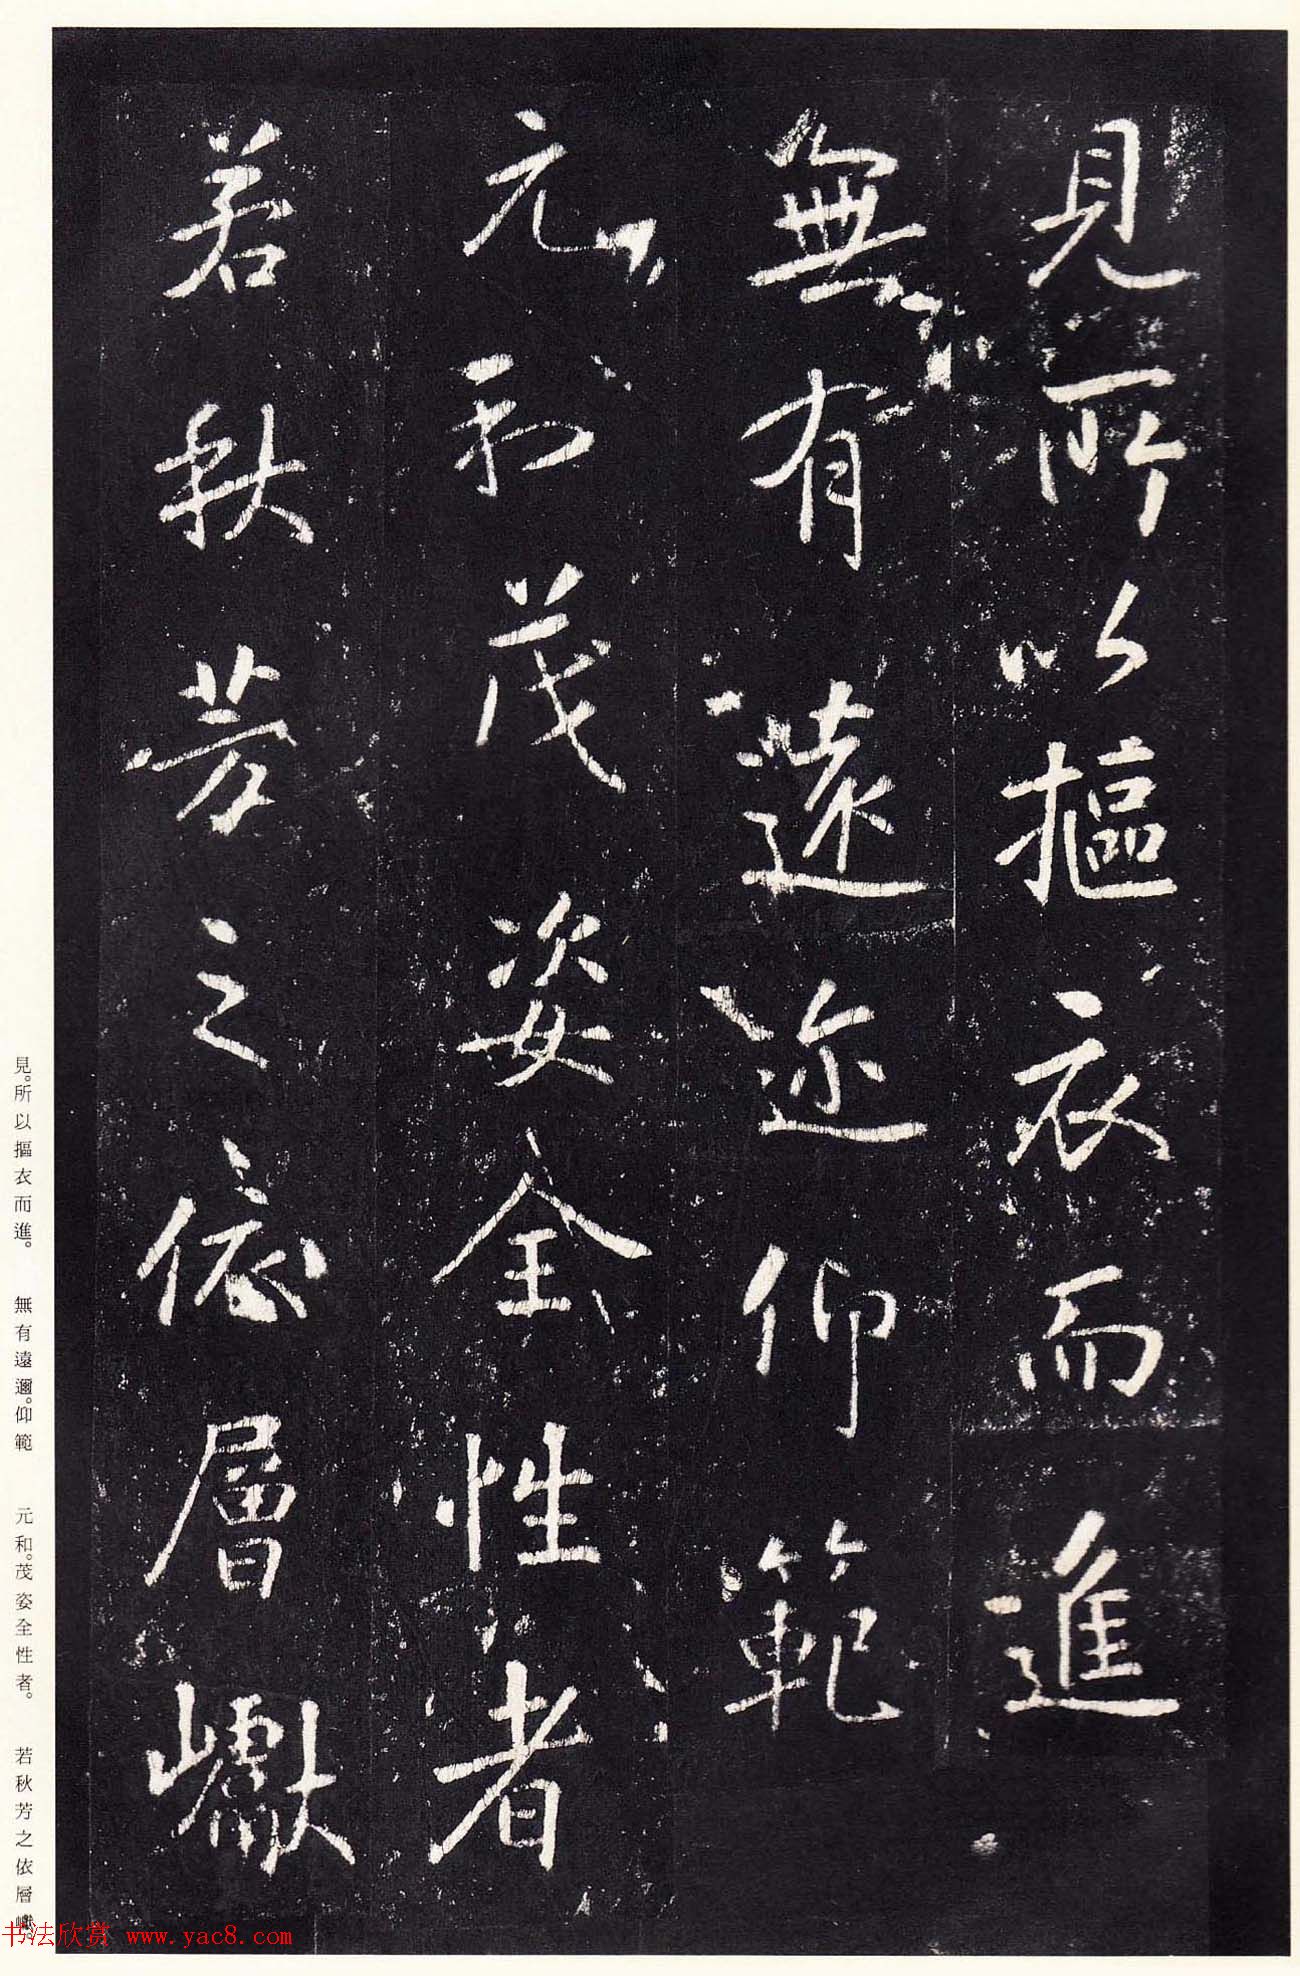 見所以摳衣而進
無有遠迩仰範
元和茂姿全性者
若秋芳之依層巘
見。所以摳衣而進。　無有遠邇。仰範　元和。茂姿全性者。　若秋芳之依層巘。
书法欣赏 www.yac8.com